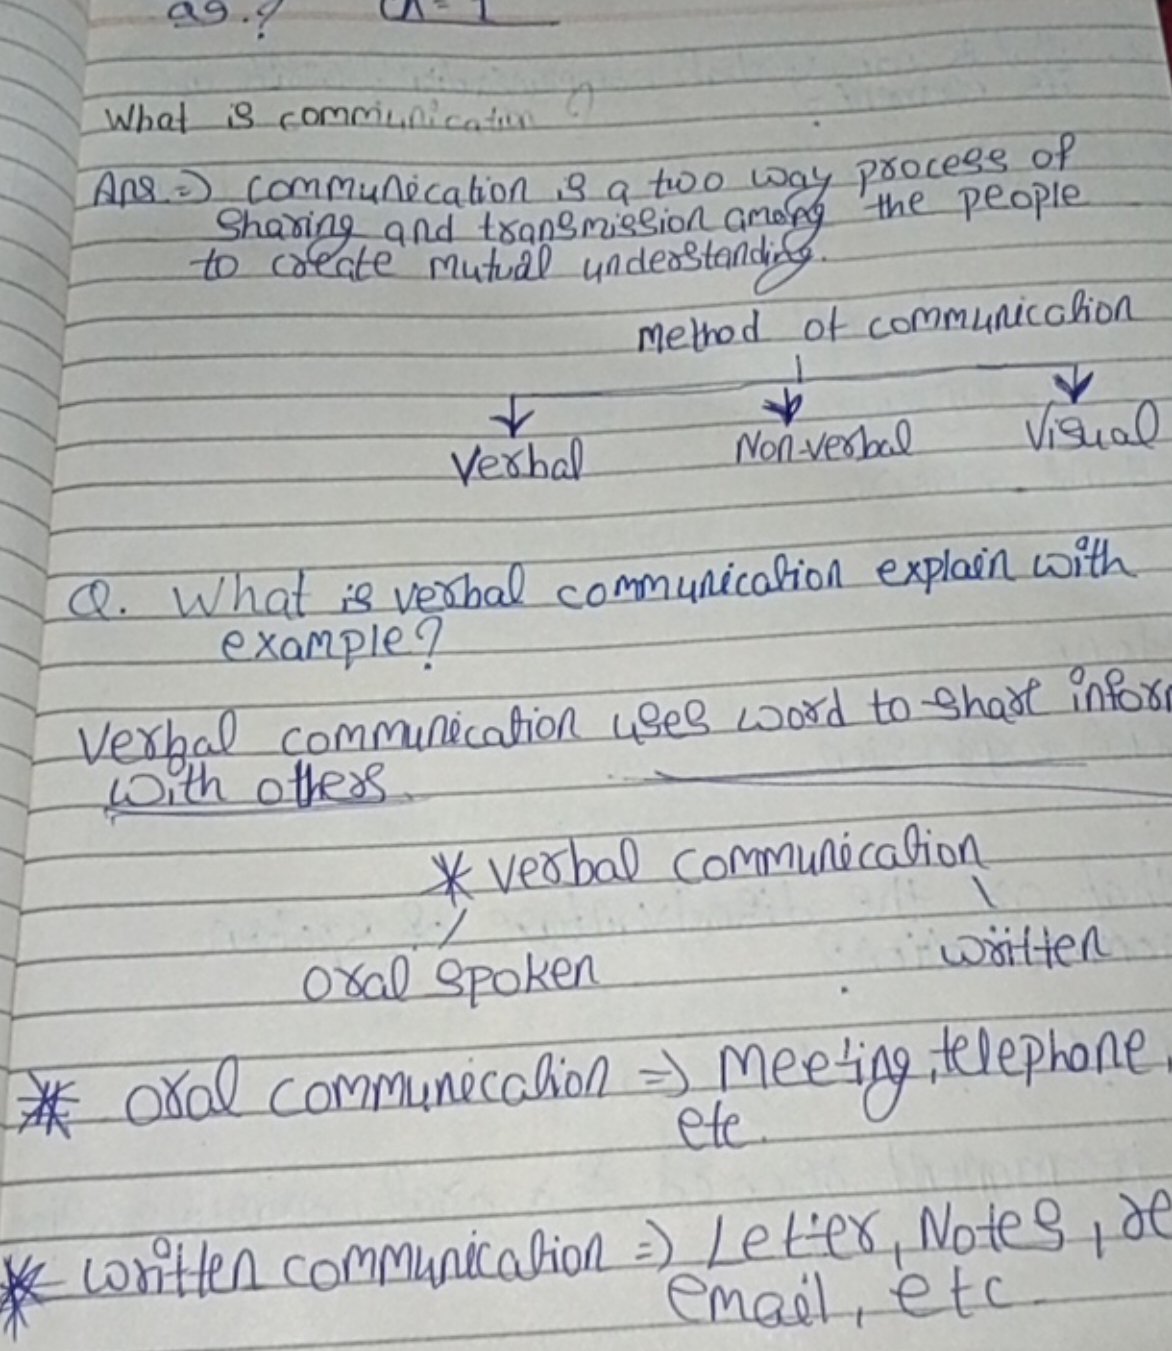 What is communication ?
Ans => communication is a two way process of
sharing and transmission among the people
to create mutual understanding.
Method of communication
Verbal Non-verbal Visual
Q. What is verbal communication explain with
example?
Verbal communication uses word to share infor
with others.
* verbal communication
oral spoken written
* oral communication => Meeting, telephone,
etc.
* written communication => Letter, Notes, re
email, etc.